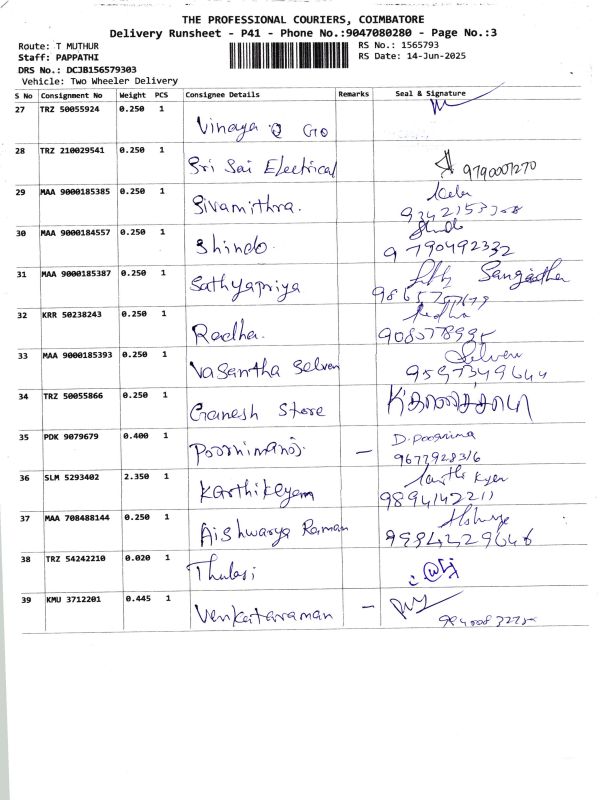 THE PROFESSIONAL COURIERS, COIMBATORE
Delivery Runsheet - P41 - Phone No.:9047080280 - Page No.:3
Route: T MUTHUR
RS No.: 1565793
Staff: PAPPATHI
RS Date: 14-Jun-2025
DRS No.: DCJB156579303
Vehicle: Two Wheeler Delivery
S No Consignment No Weight PCS Consignee Details Remarks Seal & Signature
27 TRZ 50055924 0.250 1
Vinaya
28 TRZ 210029541 0.250 1
Sri Sai Electrical 9790007270
29 MAA 9000185385 0.250 1
Sivamithra.
30 MAA 9000184557 0.250 1
Shindo. 9790492332
31 MAA 9000185387 0.250 1
Sathyapriya Sangeetha
32 KRR 50238243 0.250 1
Radha.
33 MAA 9000185393 0.250 1
Vasantha Selvan Selven
9597349644
34 TRZ 50055866 0.250 1
Ganesh Store
35 PDK 9079679 0.400 1
D. Poornima
— 9677928316
36 SLM 5293402 2.350 1
Karthikeyam 9894142211
37 MAA 708488144 0.250 1
Aishwarya Raman
38 TRZ 54242210 0.020 1
Thulasi
39 KMU 3712201 0.445 1
Venkataraman —